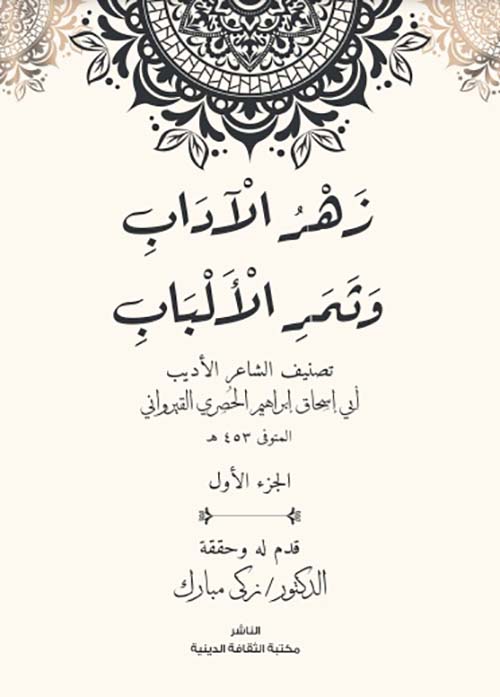 زَهْرُ الْآدَابِ
وَثَمَرِ الْأَلْبَابِ
تصنيف الشاعر الأديب
أبي إسحاق إبراهيم الحُصري القيرواني
المتوفى ٤٥٣ هـ
الجزء الأول
قدم له وحققة
الدكتور/ زكى مبارك
الناشر
مكتبة الثقافة الدينية